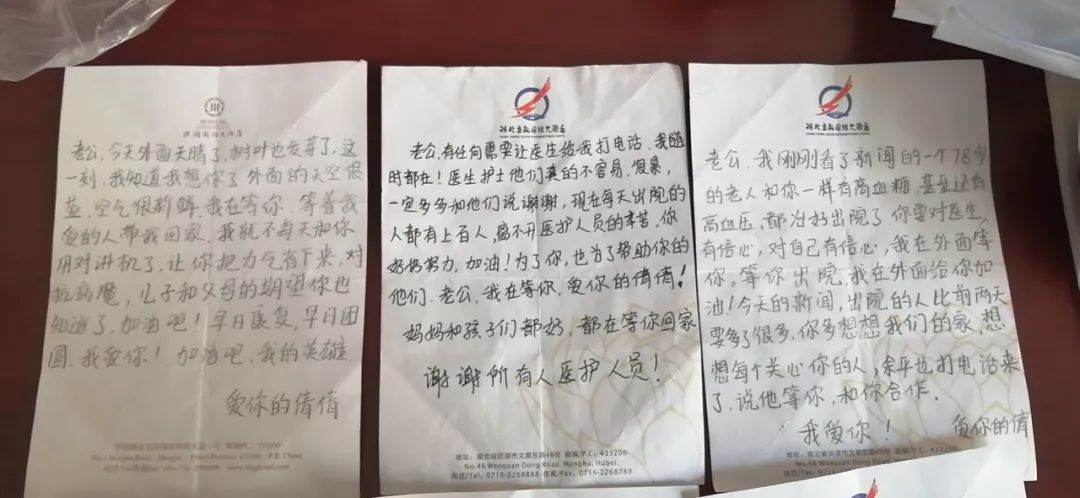 洪湖国际大酒店
老公,今天外面天晴了,树叶也发芽了,这
一刻,我知道我想你了,外面的天空很
蓝,空气很新鲜,我在等你,等着我
爱的人带我回家,我就不每天和你
用对讲机了,让你把力气省下来,对
抗病魔,儿子和父母的期望你也
知道了,加油吧!早日康复,早日团
圆,我爱你!加油吧,我的英雄
爱你的倩倩
P.R. China
老公,有任何需要让医生给我打电话,我随
时都在!医生护士他们真的不容易,很累,
一定多多和他们说谢谢,现在每天出院的
人都有上百人,离不开医护人员的辛苦,你
好好努力,加油!为了你,也为了帮助你的
他们,老公,我在等你,爱你的倩倩!
妈妈和孩子们都好,都在等你回家
谢谢所有人医护人员!
地址:湖北省洪湖市文泉东路46号 邮编/P.C. 433200
No.46 Wenquan Dong Road, Honghu, Hubei.
电话/Tel: 0716-2268888 传真/Fax: 0716-2268789
老公,我刚刚看了新闻的一个78岁
的老人和你一样有高血糖,甚至还有
高血压,都治好出院了,你要对医生
有信心,对自己有信心,我在外面等
你。等你出院,我在外面给你加
油!今天的新闻,出院的人比前两天
要多了很多,你多想想我们的家,想
想每个关心你的人,余平也打电话来
了,说他等你,和你合作.
我爱你!
爱你的倩
地址:湖北省洪湖市文泉东路46号 邮编/P.C. 433200
No.46 Wenquan Dong Road, Honghu, Hubei.
电话/Tel: 0716-2268888 传真/Fax: 0716-2268789